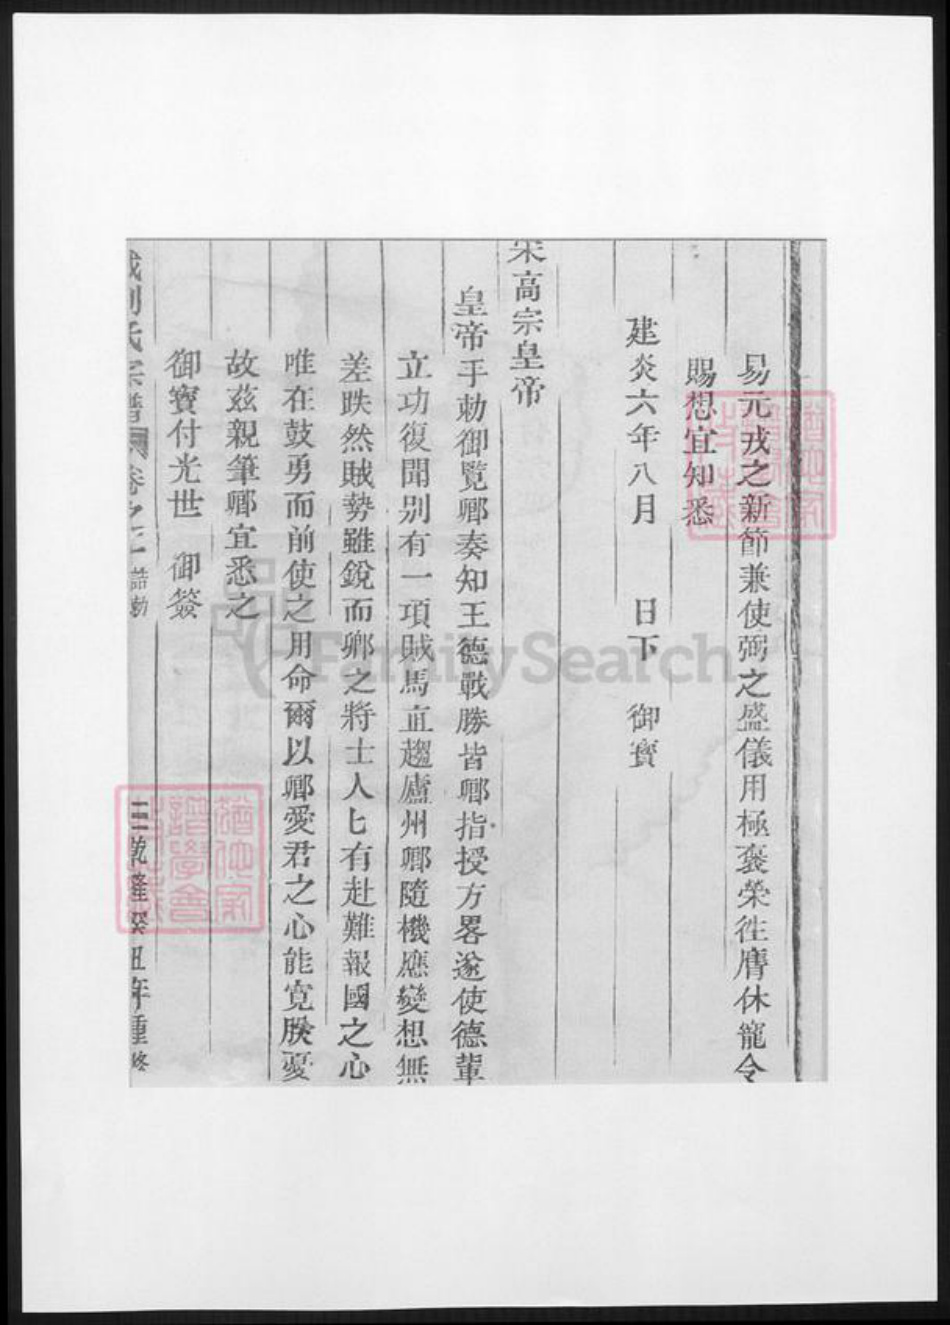 易元戎之新節兼使弼之盛儀用極褒榮徃膺休寵令
賜想宜知悉
建炎六年八月 日下 御寶
宋高宗皇帝
皇帝手勅御覧卿奏知王德戰勝皆卿指授方畧遂使德輩
立功復聞别有一項賊馬直趨廬州卿隨機應變想無
差跌然賊勢雖銳而卿之將士人七有赴難報國之心
唯在鼓勇而前使之用命爾以卿愛君之心能寛朕憂
故茲親筆卿宜悉之
御寶付光世 御簽
劉氏宗譜 卷之 誥勅
三 乾隆癸丑年重修
FamilySearch